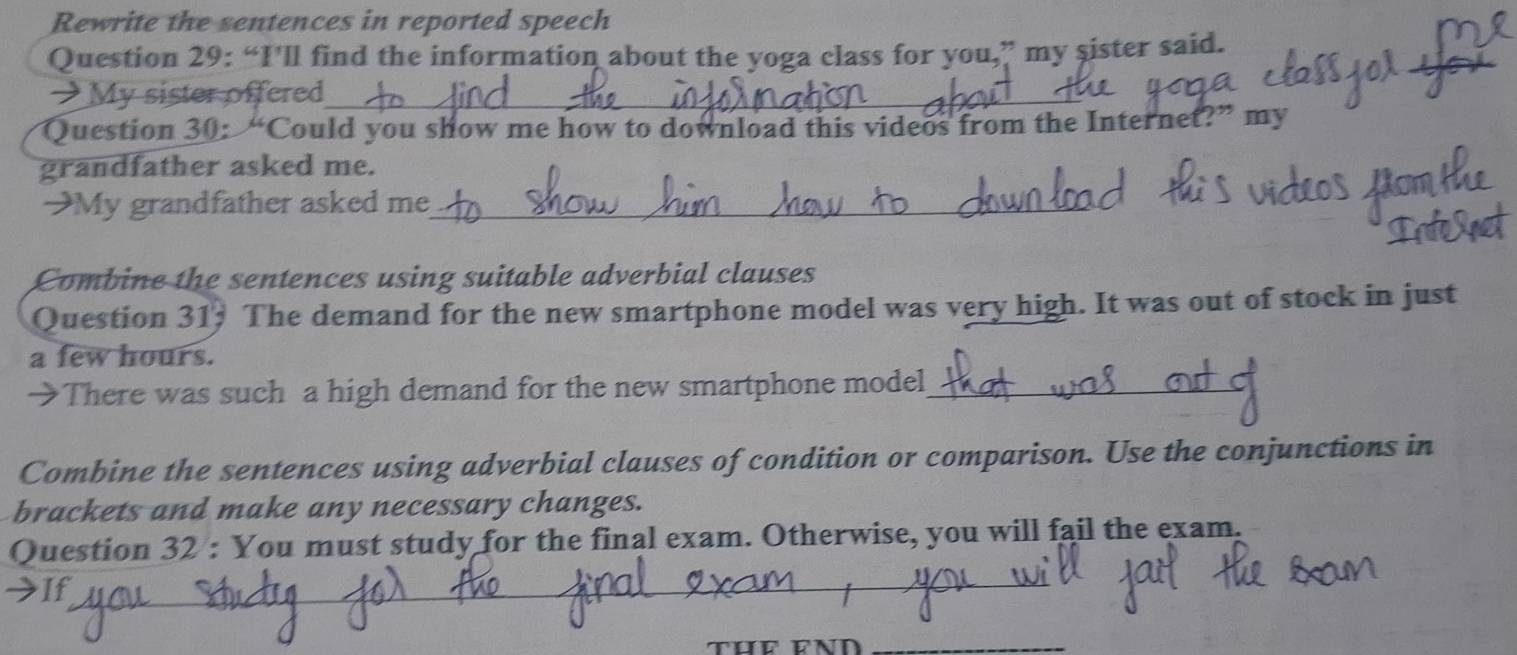 Rewrite the sentences in reported speech
Question 29: “I’ll find the information about the yoga class for you,” my sister said.
→ My sister offered to find the information about the yoga class for you me
Question 30: “Could you show me how to download this videos from the Internet?” my
grandfather asked me.
→My grandfather asked me to show him how to download this videos from the
Internet
Combine the sentences using suitable adverbial clauses
Question 31: The demand for the new smartphone model was very high. It was out of stock in just
a few hours.
→There was such a high demand for the new smartphone model that was out of
Combine the sentences using adverbial clauses of condition or comparison. Use the conjunctions in
brackets and make any necessary changes.
Question 32 : You must study for the final exam. Otherwise, you will fail the exam.
→If you study for the final exam, you will fail the exam
THE END